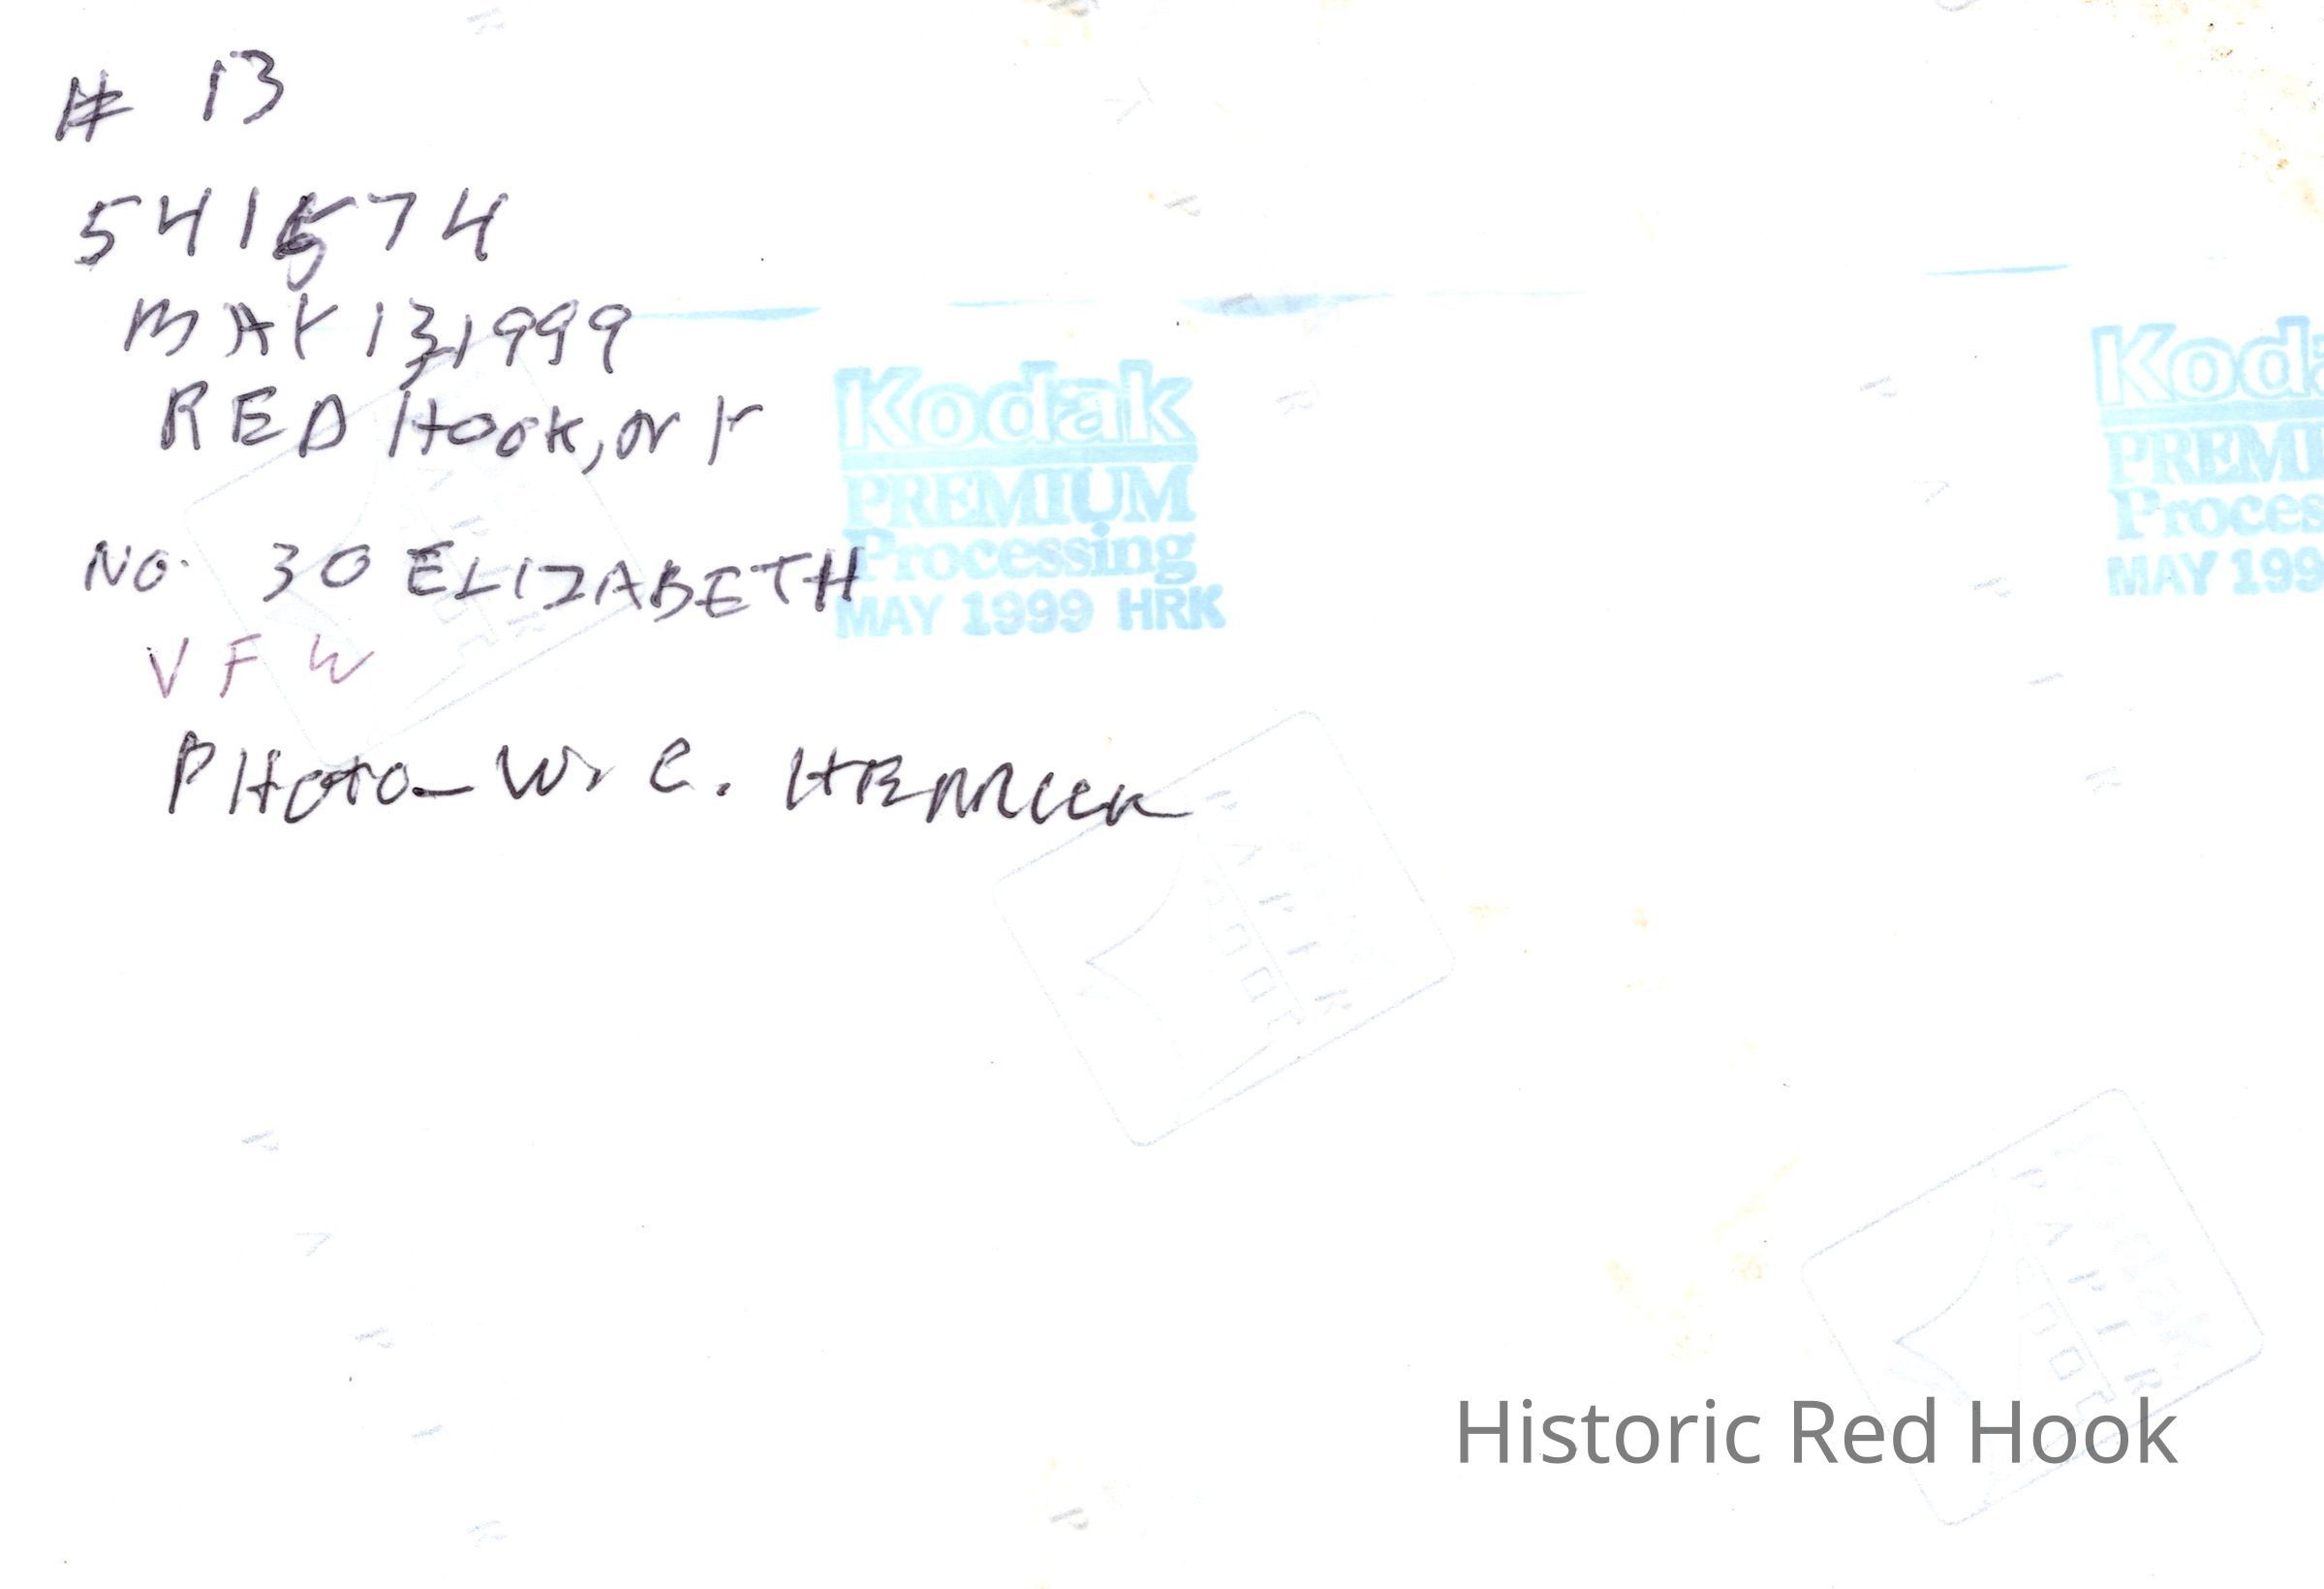 # 13
541574
MAY 13, 1999
RED HOOK, NY
NO. 30 ELIZABETH
VFW
PHOTO - W. C. HERRICK
Kodak
PREMIUM
Processing
MAY 1999 HRK
Koda
PREMIU
Proces
MAY 199
Historic Red Hook